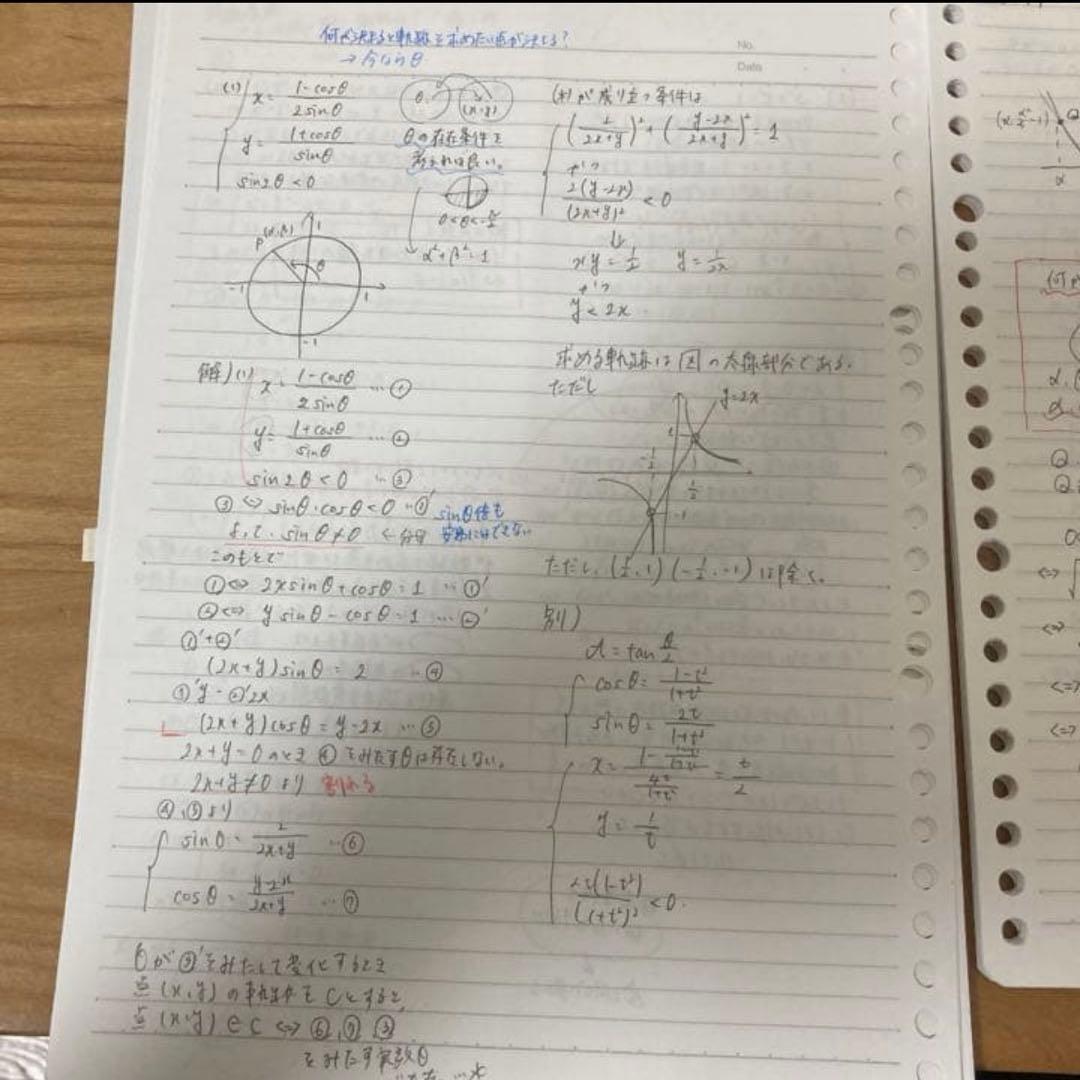 何が決まると軌跡を求めたい点が決まる?
→今ならθ
No.
Date
(1) x = (1-cosθ)/(2sinθ)
y = (1+cosθ)/sinθ
sin2θ < 0
θ
(x,y)
θの存在条件を
考えれば良い。
α²+β²=1
P(α,β)
1
θ
-1
1
-1
解)(1) x = (1-cosθ)/(2sinθ) …①
y = (1+cosθ)/sinθ …②
sin2θ < 0 …③
③ ⇔ sinθ・cosθ < 0 …③'
よって sinθ ≠ 0 ←分母
sinθ倍も
安易にはできない
このもとで
①⇔ 2xsinθ+cosθ = 1 …①'
②⇔ ysinθ-cosθ = 1 …②'
①'+②'
(2x+y)sinθ = 2 …④
①'y-②'2x
(2x+y)cosθ = y-2x …⑤
2x+y=0のとき ④をみたすθは存在しない。
2x+y≠0より 割れる
④,⑤より
sinθ = 2/(2x+y) …⑥
cosθ = (y-2x)/(2x+y) …⑦
θが③'をみたして変化するとき
点(x,y)の軌跡をCとすると、
点(x,y)∈C ⇔ ⑥,⑦,③
をみたす実数θ
…*
(*)が成り立つ条件は
(2/(2x+y))²+((y-2x)/(2x+y))² = 1
かつ
2(y-2x)/(2x+y)² < 0
↓
xy = 1/2 y = 1/2x
かつ
y < 2x
求める軌跡は図の太線部分である。
ただし
y=2x
-1/2
1/2
-1
ただし、(1/2,1) (-1/2,-1)は除く。
別)
t = tan θ/2
cosθ = (1-t²)/(1+t²)
sinθ = 2t/(1+t²)
x = (1-(1-t²)/(1+t²))/(4t/(1+t²)) = t/2
y = 1/t
2t(1-t²)/(1+t²)² < 0.